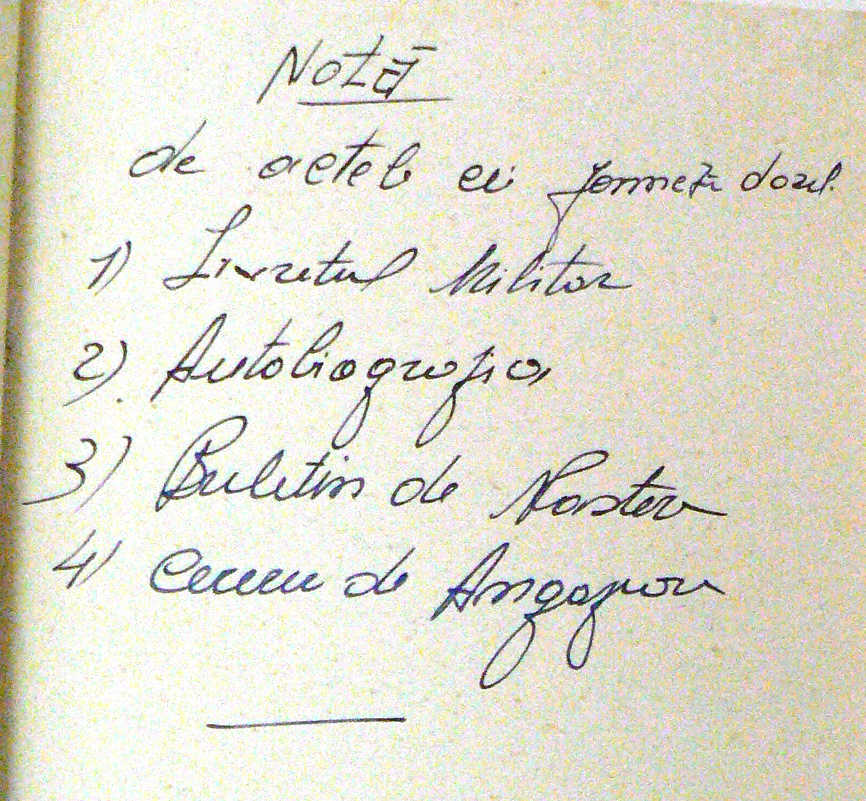 Notă
de actele ce formează dosarul
1) Livretul Militar
2) Autobiografia
3) Buletin de Naștere
4) Cerere de Angajare